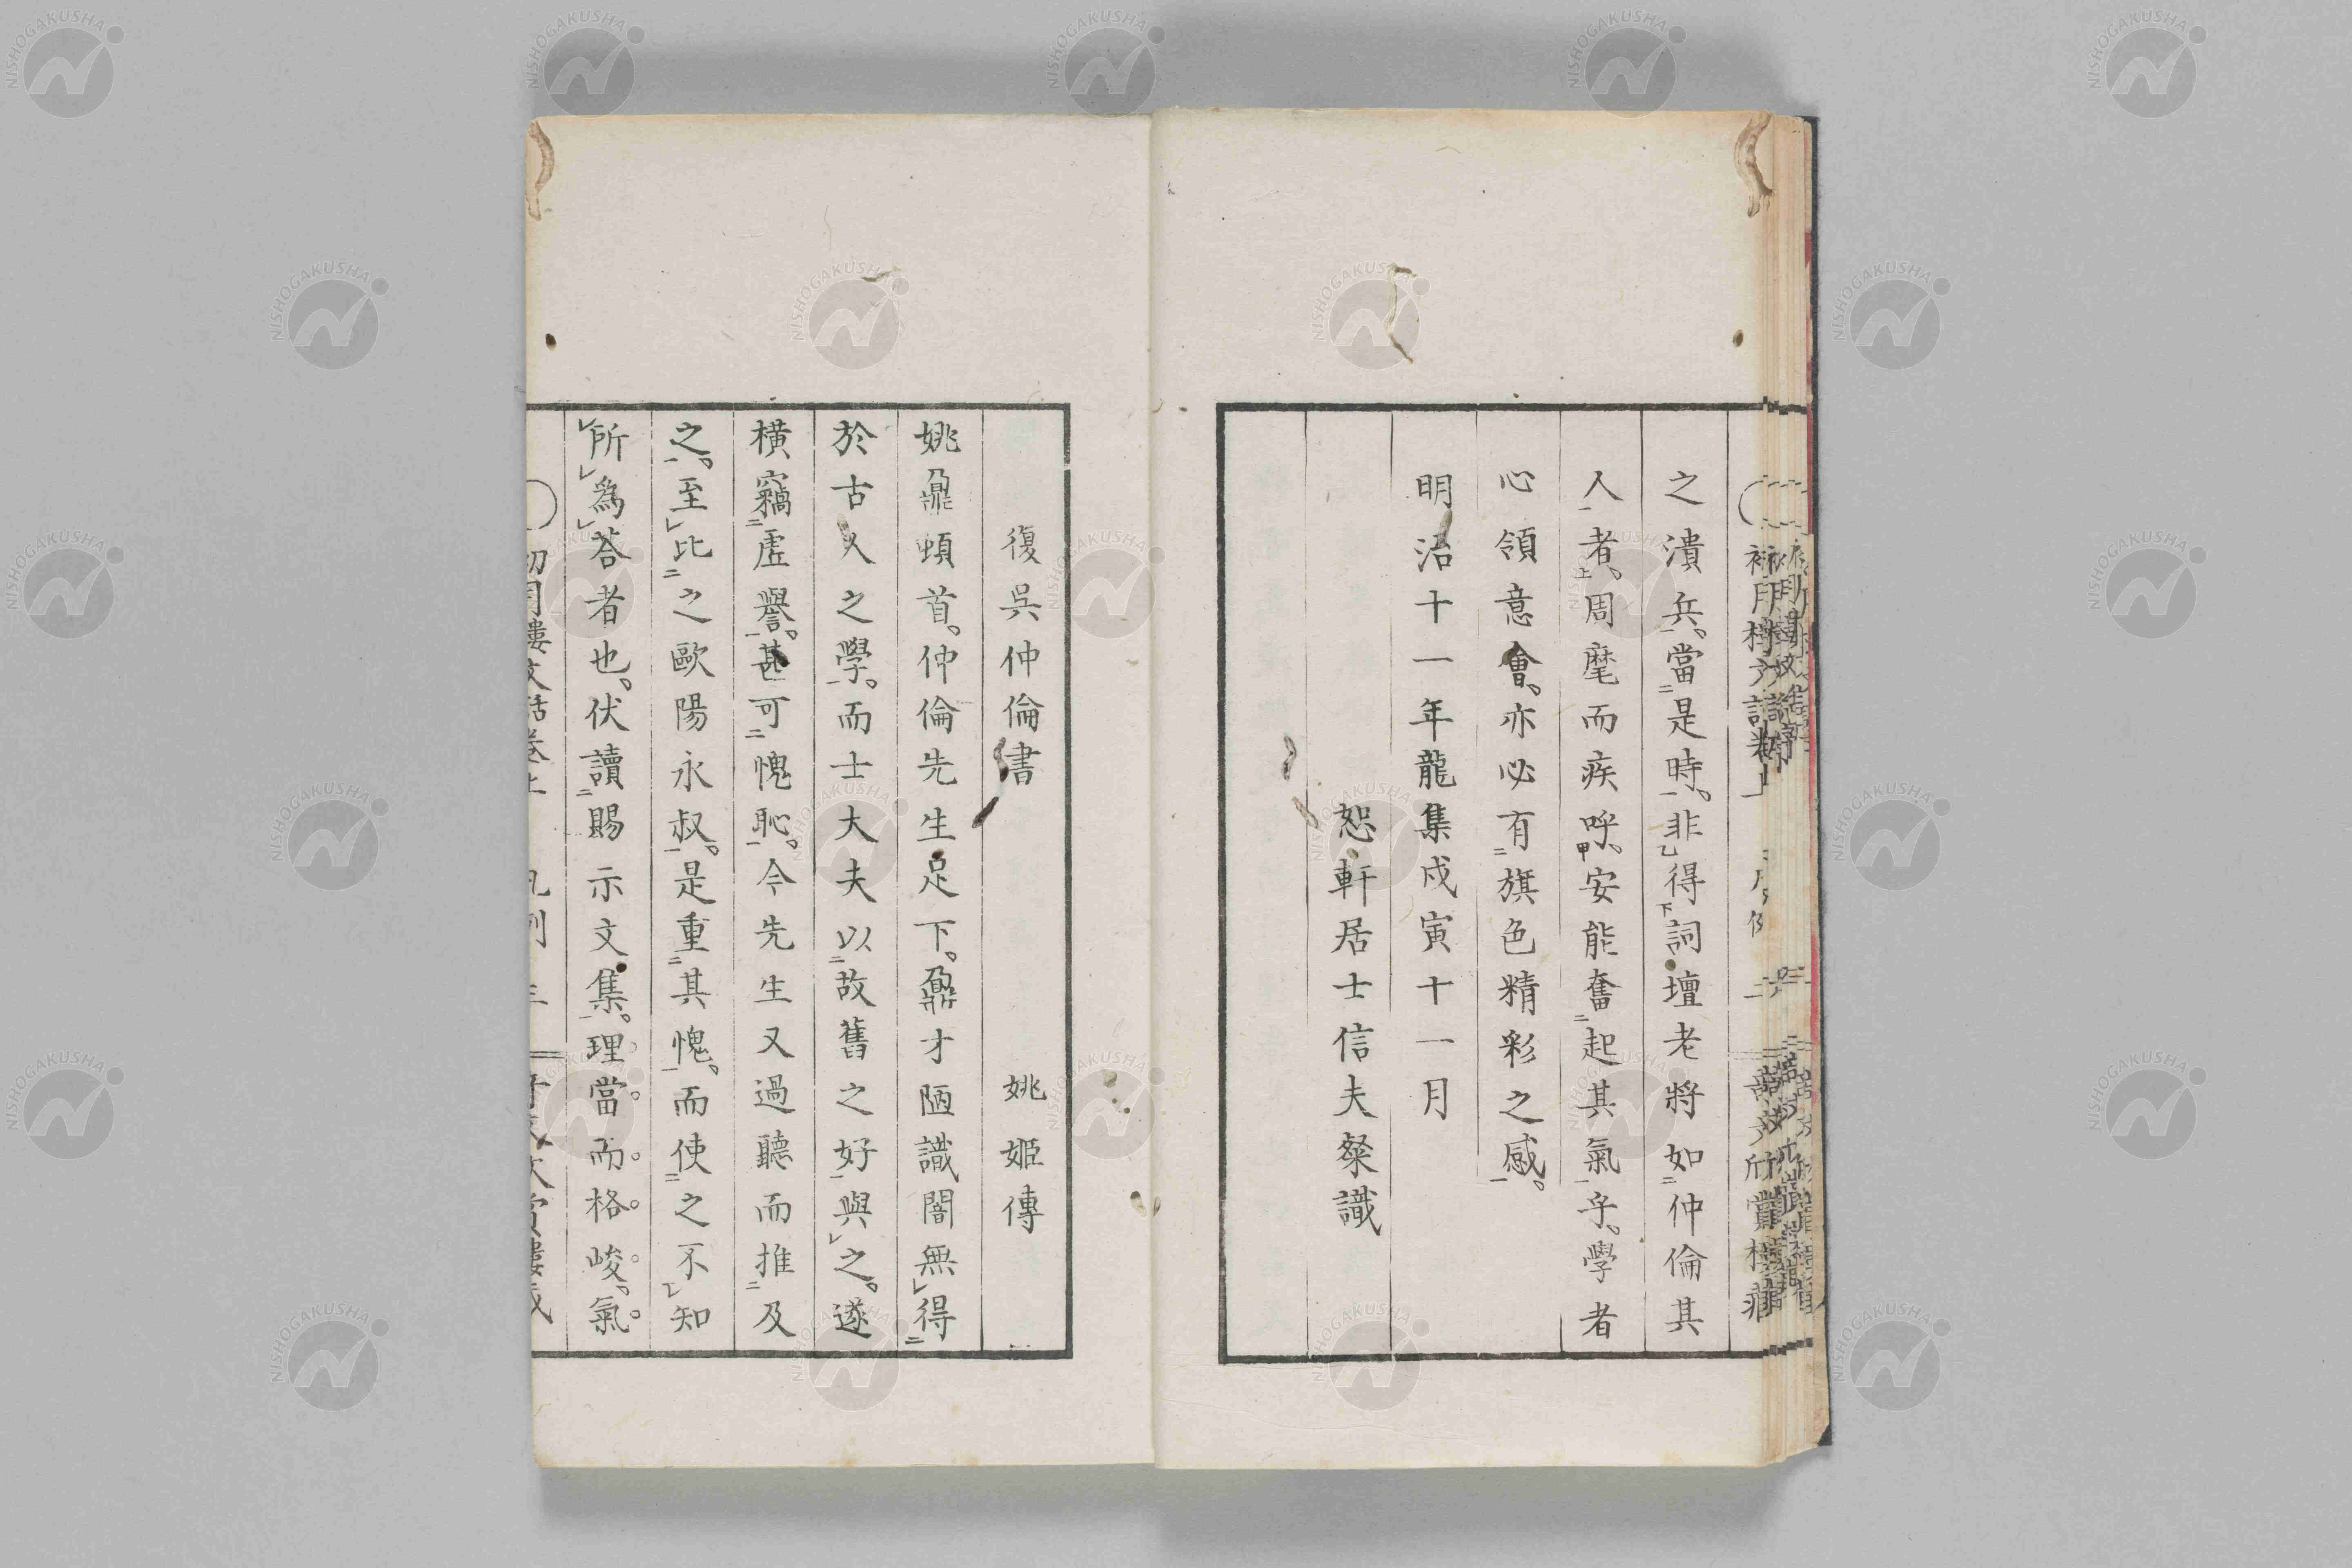 之潰兵。當是時。非得詞壇老將如仲倫其
人者。周麾而疾呼。安能奮起其氣乎。學者
心領意會。亦必有旗色精彩之感。
明治十一年龍集戊寅十一月
恕軒居士信夫粲識
復吳仲倫書 姚姬傳
姚鼐頓首。仲倫先生足下。鼐才陋識闇無得
於古人之學。而士大夫以故舊之好與之。遂
橫竊虛譽。甚可愧恥。今先生又過聽而推及
之。至比之歐陽永叔。是重其愧。而使之不知
所為荅者也。伏讀賜示文集。理當。而格峻。氣
NISHOGAKUSHA